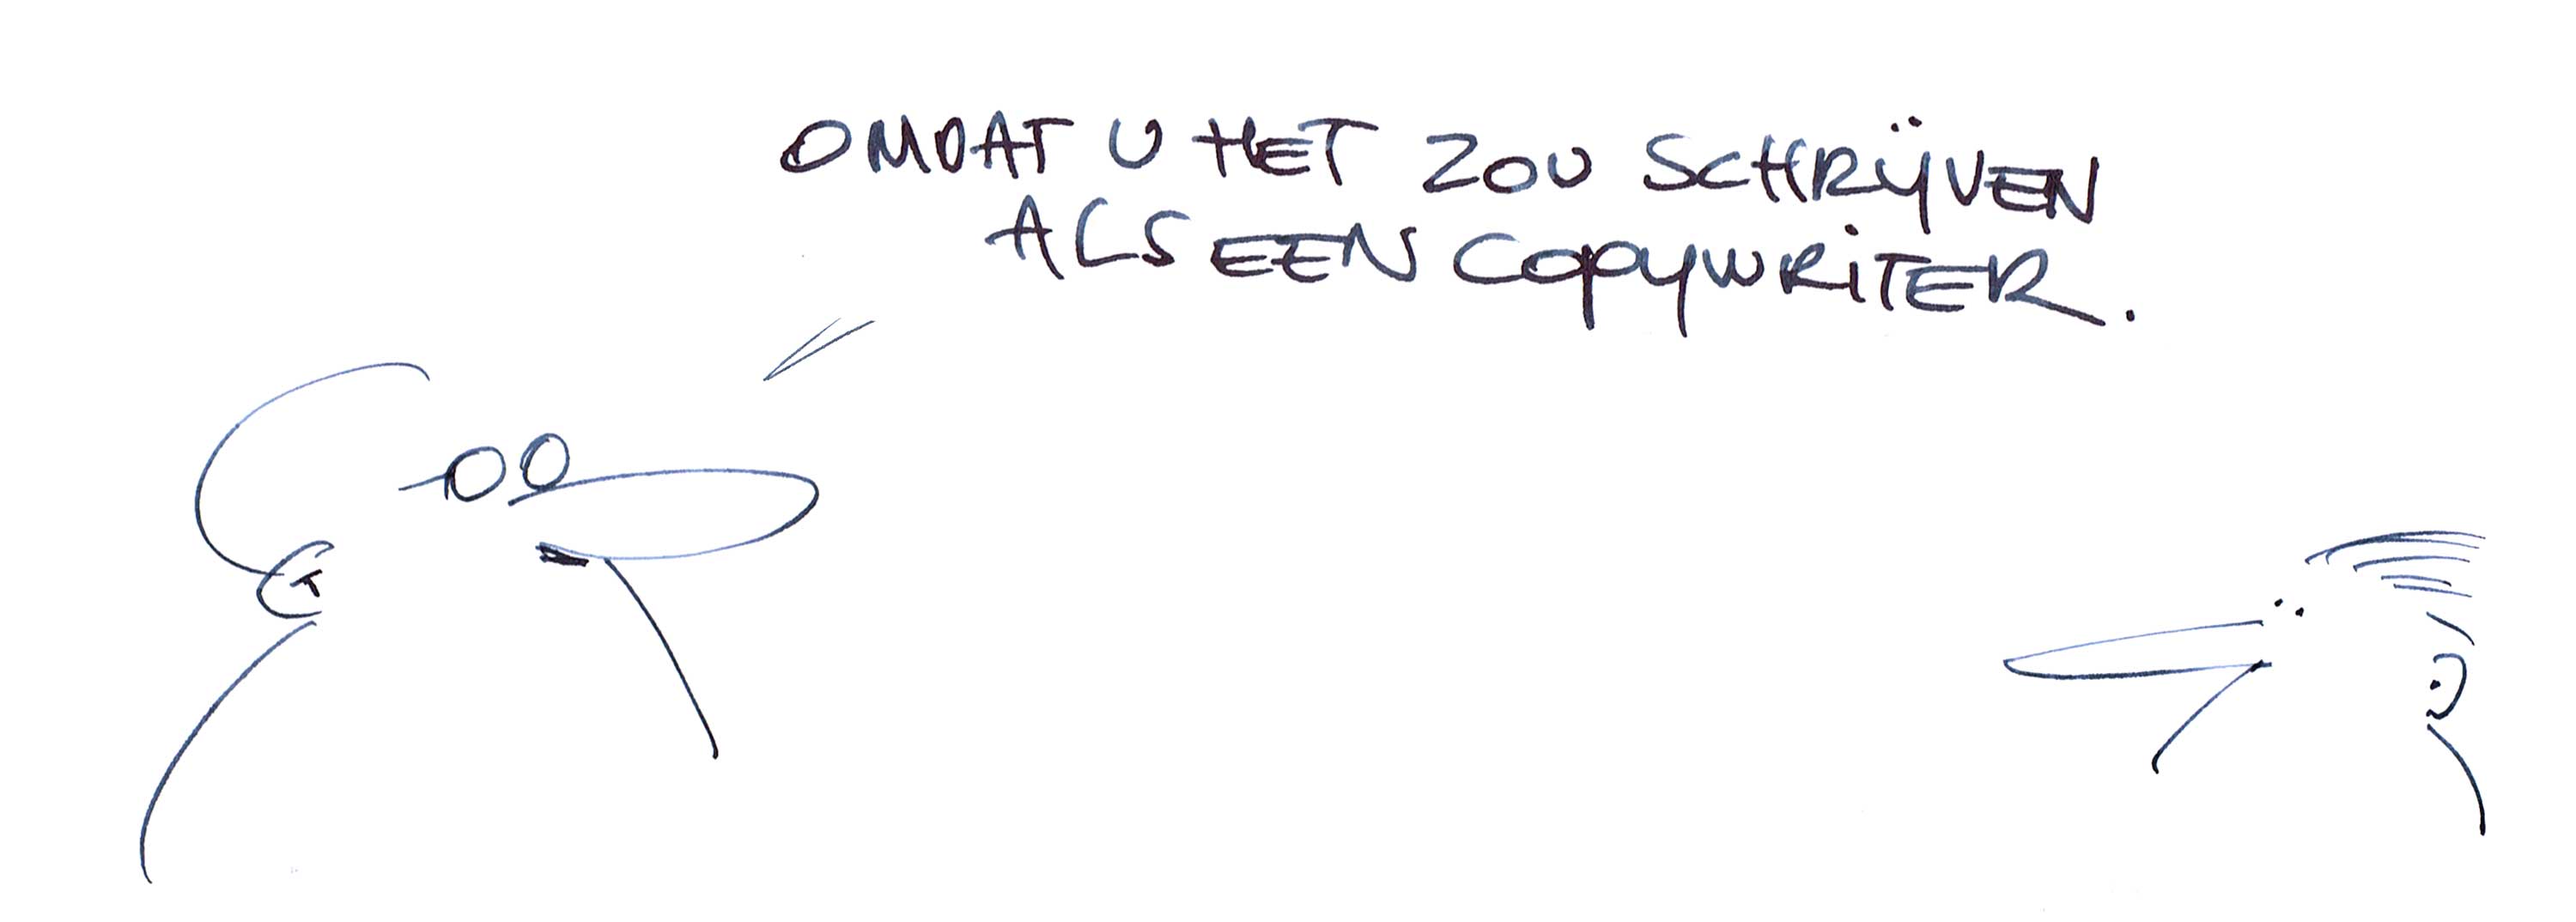 OMDAT U HET ZOU SCHRIJVEN
ALS EEN COPYWRITER.